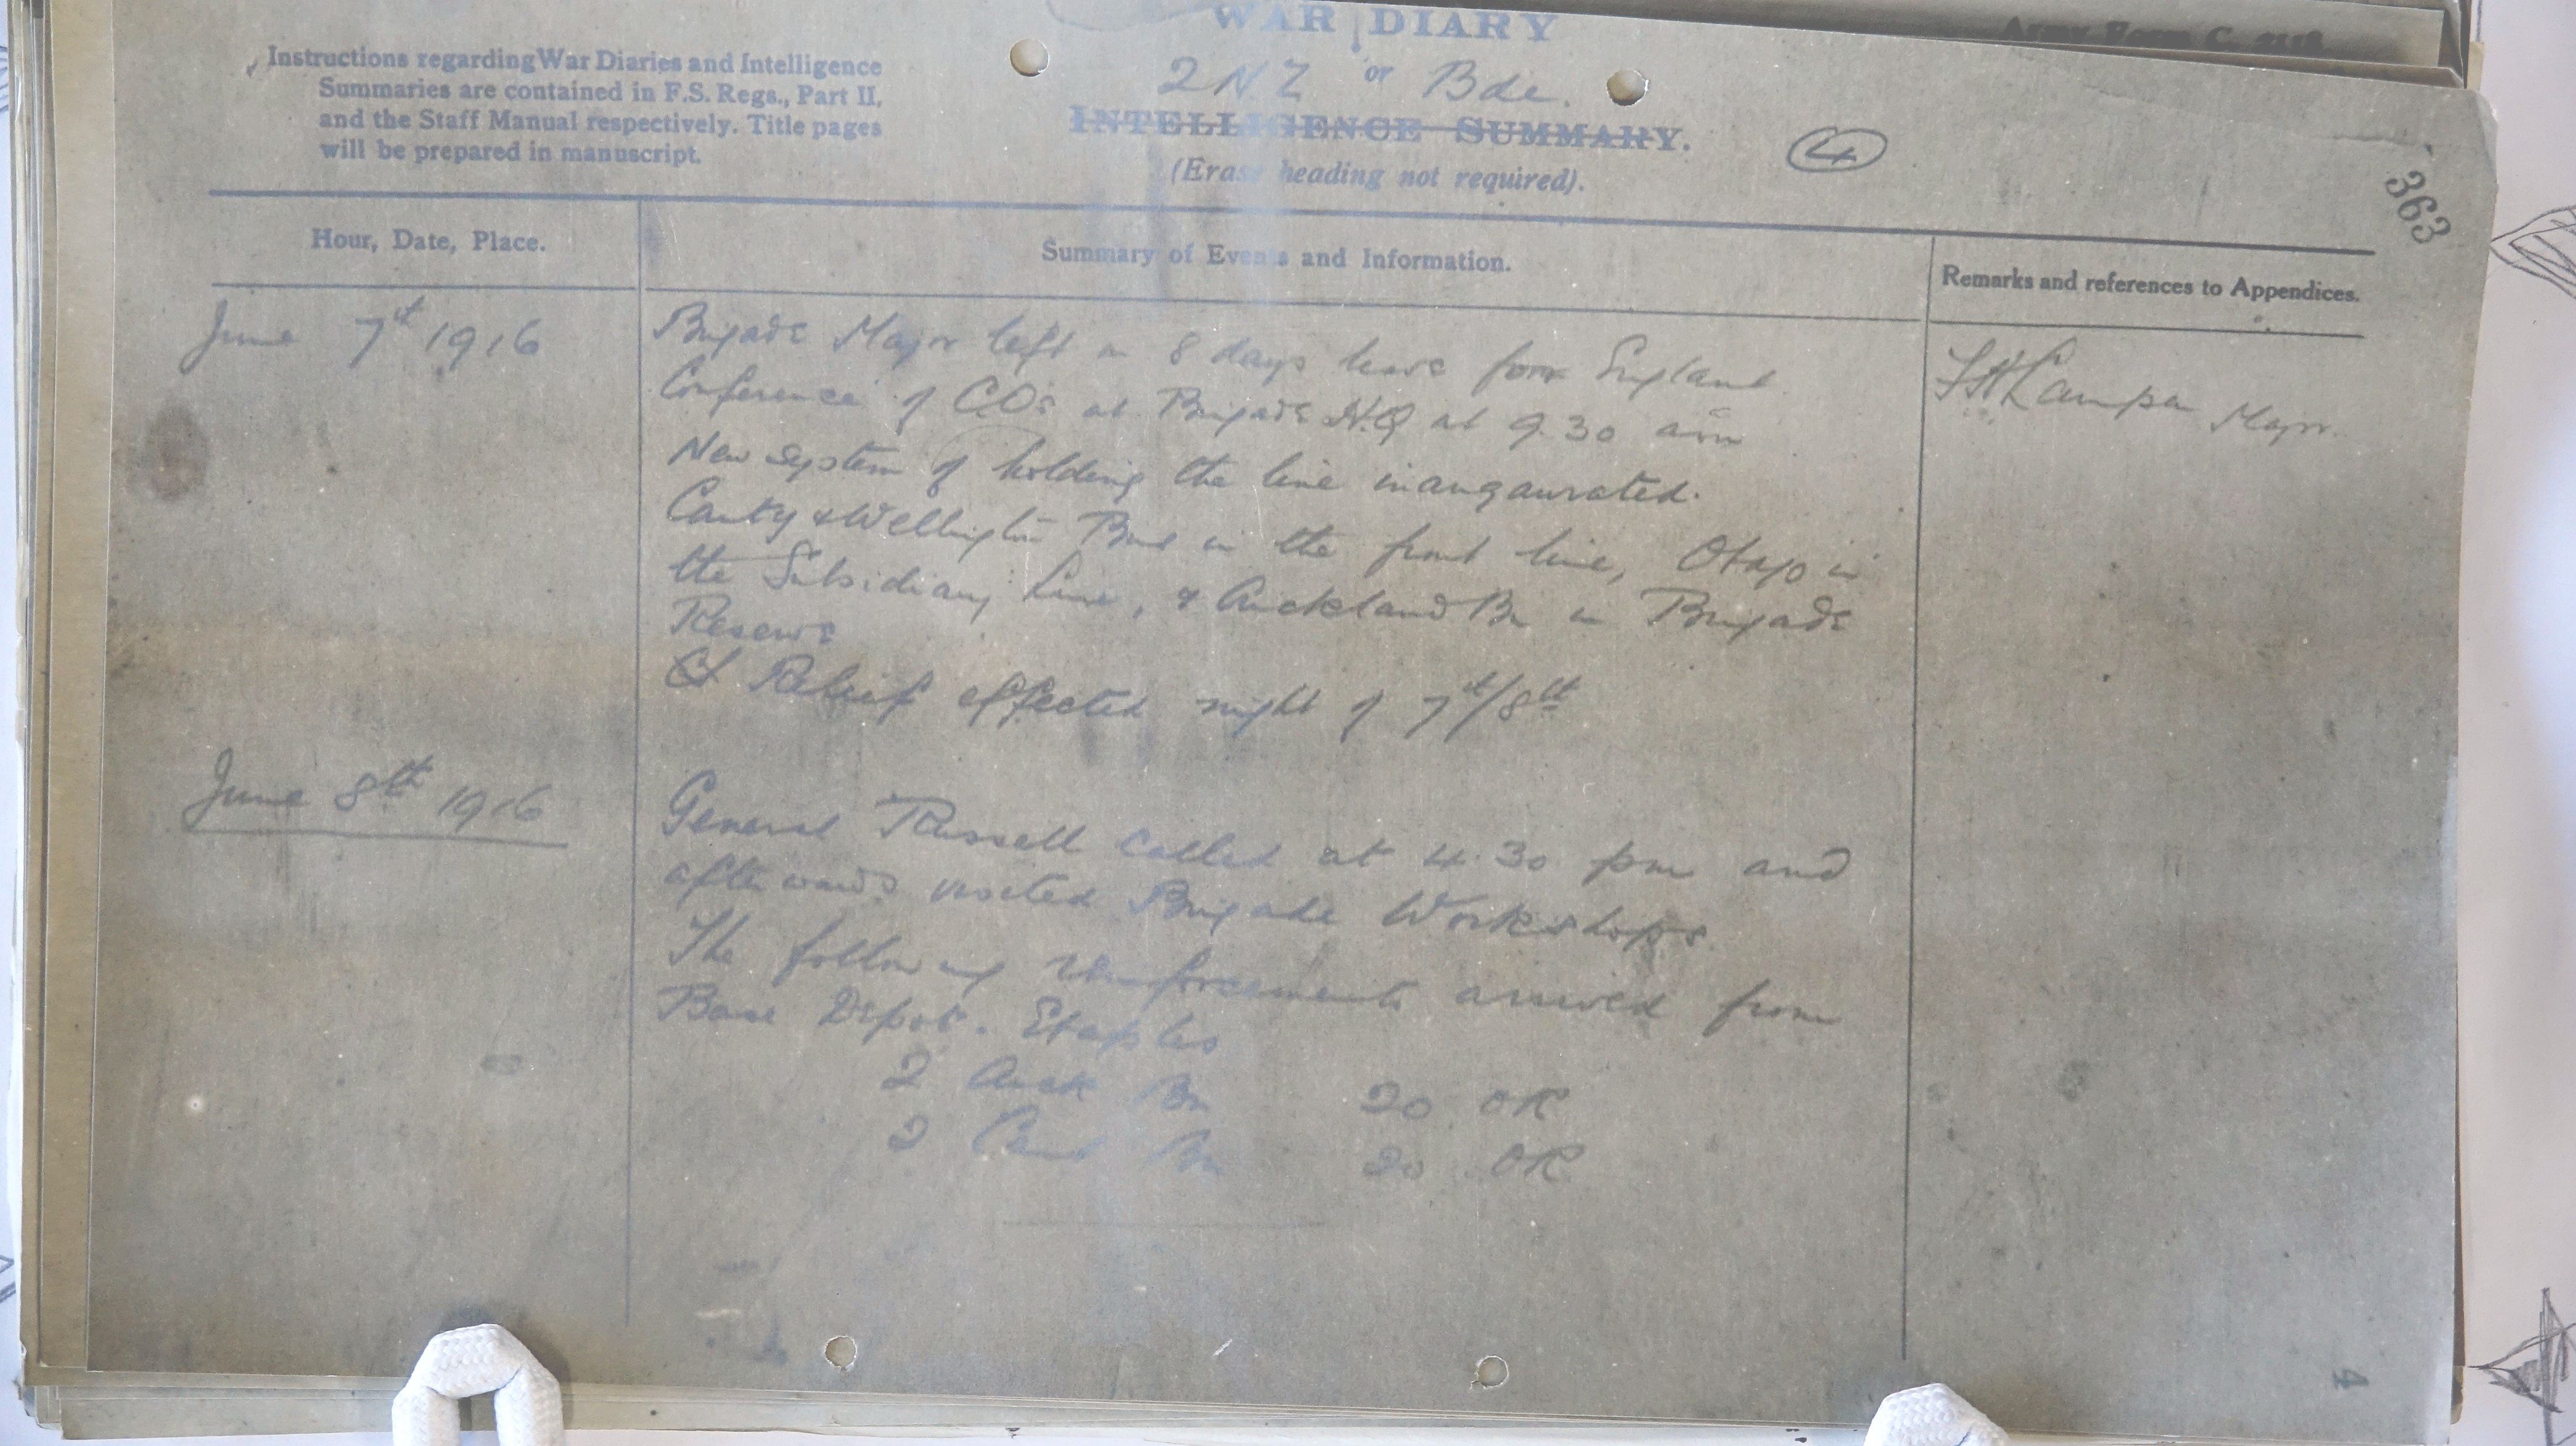 Army Form C. 2118.
WAR DIARY
Instructions regarding War Diaries and Intelligence
Summaries are contained in F.S. Regs., Part II,
and the Staff Manual respectively. Title pages
will be prepared in manuscript.
2 NZ or Bde.
INTELLIGENCE SUMMARY.
(Erase heading not required).
4
363
Hour, Date, Place.
Summary of Events and Information.
Remarks and references to Appendices.
June 7th 1916
Brigade Major left on 8 days leave for England
Major.
Conference of COs at Brigade HQ at 9.30 am
New system of holding the line inaugaurated.
Canty & Wellington Bns in the front line, Otago in
the Subsidiary Line, & Auckland Bn in Brigade
Reserve
Relief effected night of 7th/8th
June 8th 1916
General Russell called at 4.30 pm and
afterwards visited Brigade Workshops.
The following reinforcements arrived from
Base Depot. Etaples
2 Auck Bn 20 OR
2 Cant Bn 20 OR
4